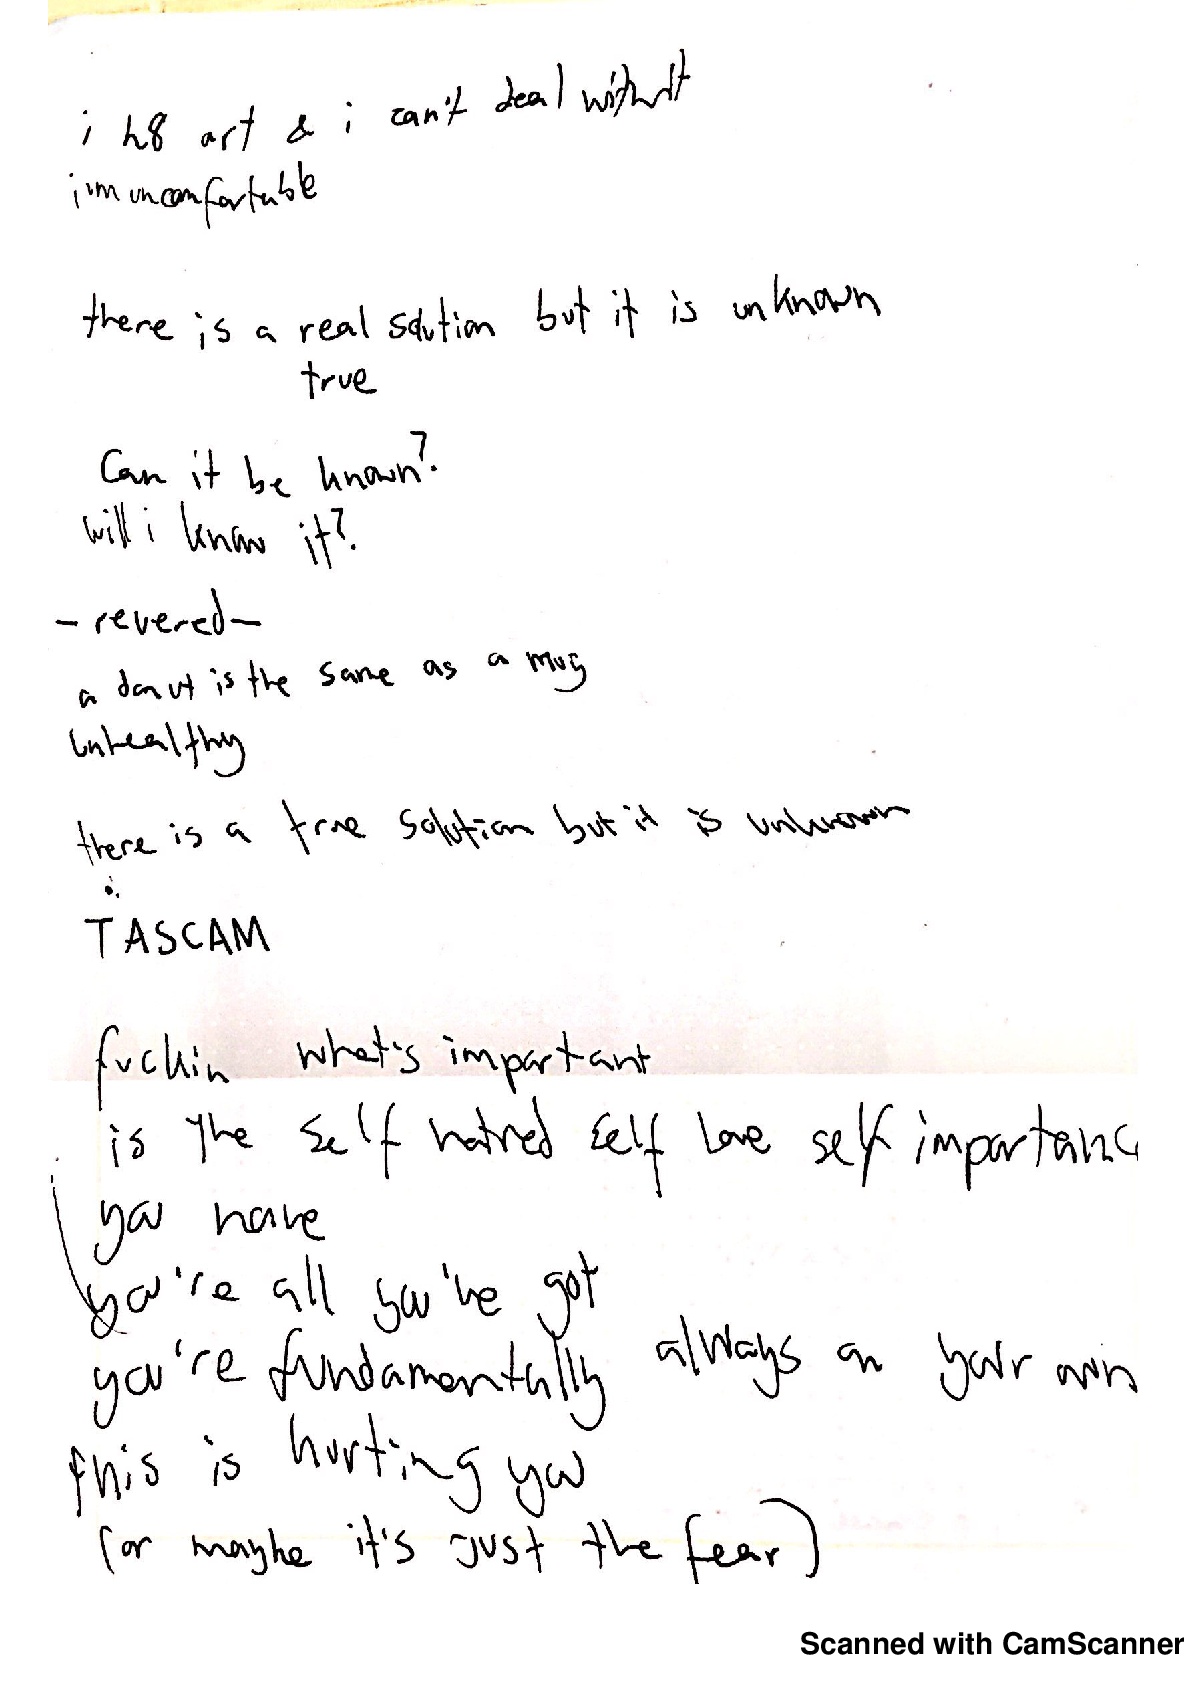 i h8 art & i can't deal without
i'm uncomfortable
there is a real solution but it is unknown
true
Can it be known?
will i know it?
- revered -
a donut is the same as a mug
unhealthy
there is a true solution but it is unknown
TASCAM
fuckin what's important
is the self hatred self love self importanc
you have
you're all you've got
you're fundamentally always on your own
this is hurting you
(or maybe it's just the fear)
Scanned with CamScanner